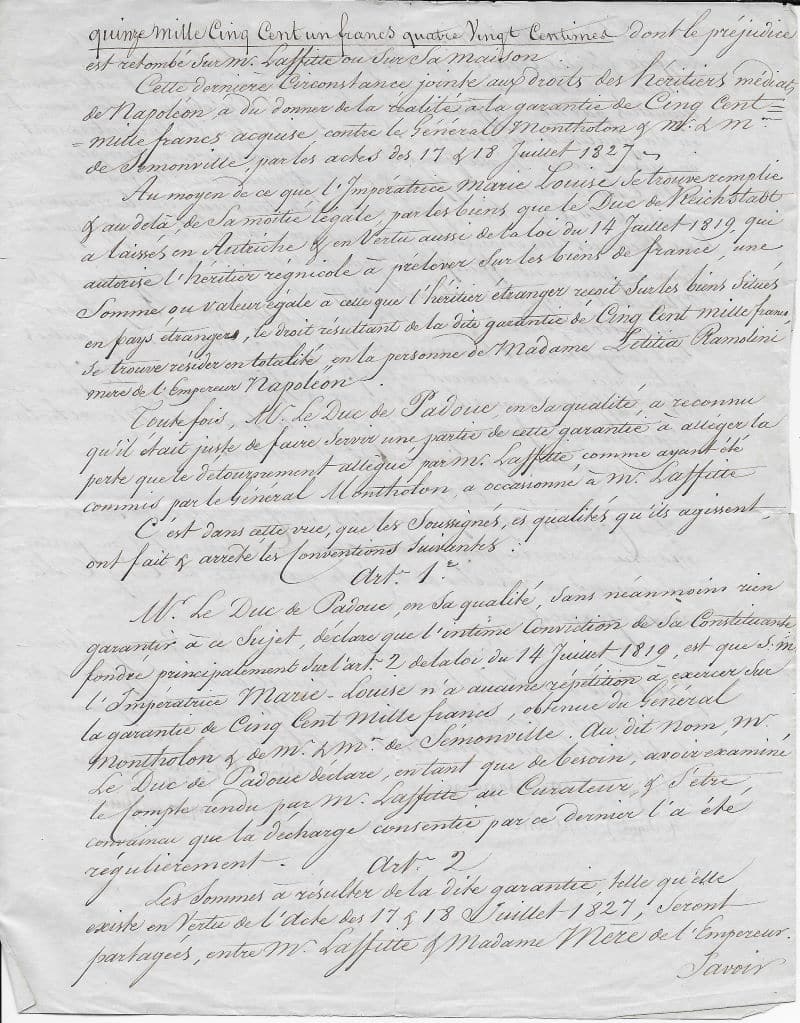 quinze mille Cinq Cent un francs quatre Vingt Centimes dont le préjudice
est retombé Sur M. Laffitte ou Sur Sa maison
Cette dernière Circonstance jointe aux droits des héritiers médiats
de Napoléon a du donner de la réalité à la garantie de Cinq Cent=
=mille francs acquise contre le Général Montholon & Mr. & Me.
de Sémonville, par les actes des 17 & 18 Juillet 1827.
Au moyen de ce que l'Impératrice Marie Louise se trouve remplie
& au delà, de Sa moitié légale, par les biens que le Duc de Reichstadt
a laissés en Autriche & en Vertu aussi de la loi du 14 Juillet 1819, qui
autorise l'héritier régnicole à prélever Sur les biens de france, une
Somme ou valeur égale à celle que l'héritier étranger reçoit Sur les biens Situés
en pays étrangers, le droit résultant de la dite garantie de Cinq Cent mille francs
Se trouve résider en totalité, en la personne de Madame Létitia Ramolini
mère de l'Empereur Napoléon.
Toutefois, Mr. Le Duc de Padoue, en Sa qualité, a reconnu
qu'il était juste de faire Servir une partie de cette garantie à alléger la
perte que le détournement allégué par M. Laffitte comme ayant été
commis par le Général Montholon, a occassonné à M. Laffitte
C'est dans cette vue, que les Soussignés, ès qualités qu'ils agissent,
ont fait & arrêté les Conventions Suivantes.
Art. 1er.
Mr. Le Duc de Padoue, en Sa qualité, Sans néanmoins rien
garantir à ce Sujet, déclare que l'intime Conviction de Sa Constituante
fondée principalement Sur l'art. 2 de la loi du 14 Juillet 1819, est que S. M.
l'Impératrice Marie-Louise n'a aucune répétition à exercer Sur
la garantie de Cinq Cent Mille francs, obtenue du Général
Montholon & de Mr. & Me. de Sémonville. Au dit Nom, Mr.
Le Duc de Padoue déclare, en tant que de besoin, avoir examiné
le Compte rendu par M. Laffitte au Curateur, & S'être
convaincu que la décharge consentie par ce dernier l'a été
régulièrement.
Art. 2
Les Sommes à résulter de la dite garantie, telle qu'elle
existe en Vertu de l'Acte des 17 & 18 Juillet 1827, Seront
partagées, entre M. Laffitte & Madame Mère de l'Empereur.
Savoir